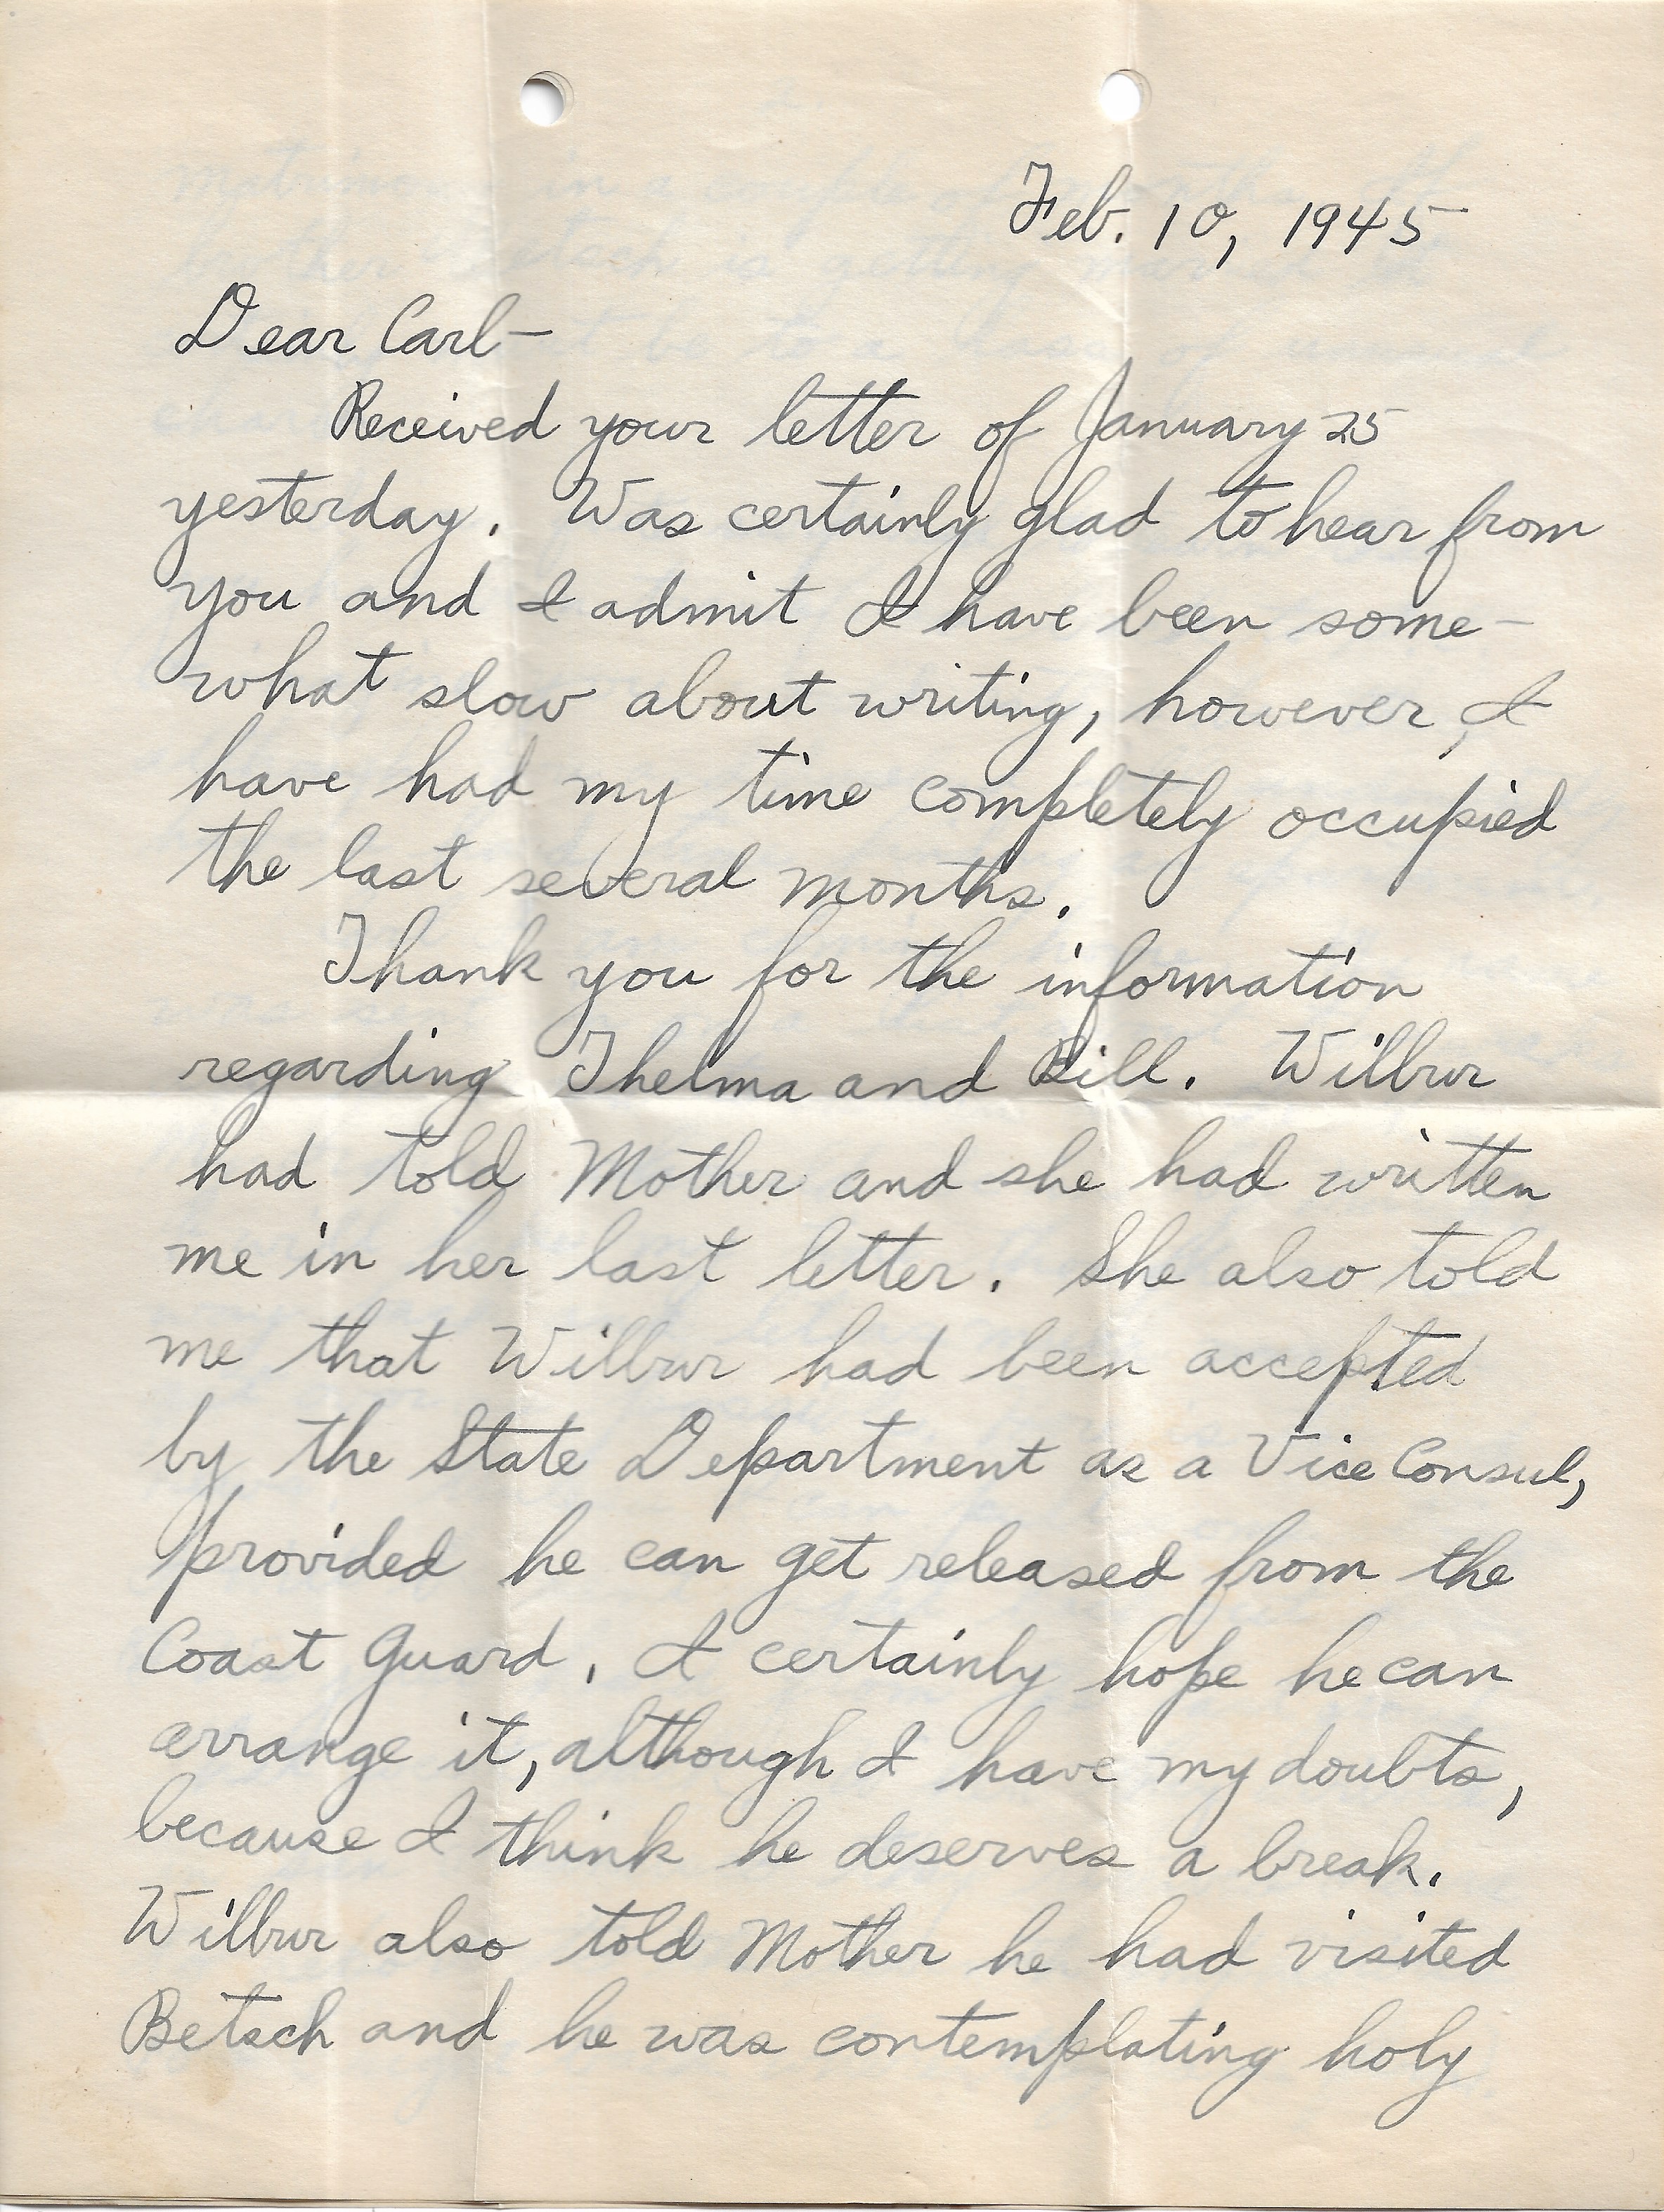 Feb. 10, 1945
Dear Carl—
Received your letter of January 25
yesterday. Was certainly glad to hear from
you and I admit I have been some-
what slow about writing, however, I
have had my time completely occupied
the last several months.
Thank you for the information
regarding Thelma and Bill. Wilbur
had told Mother and she had written
me in her last letter. She also told
me that Wilbur had been accepted
by the State Department as a Vice Consul,
provided he can get released from the
Coast Guard. I certainly hope he can
arrange it, although I have my doubts,
because I think he deserves a break.
Wilbur also told Mother he had visited
Betsch and he was contemplating holy